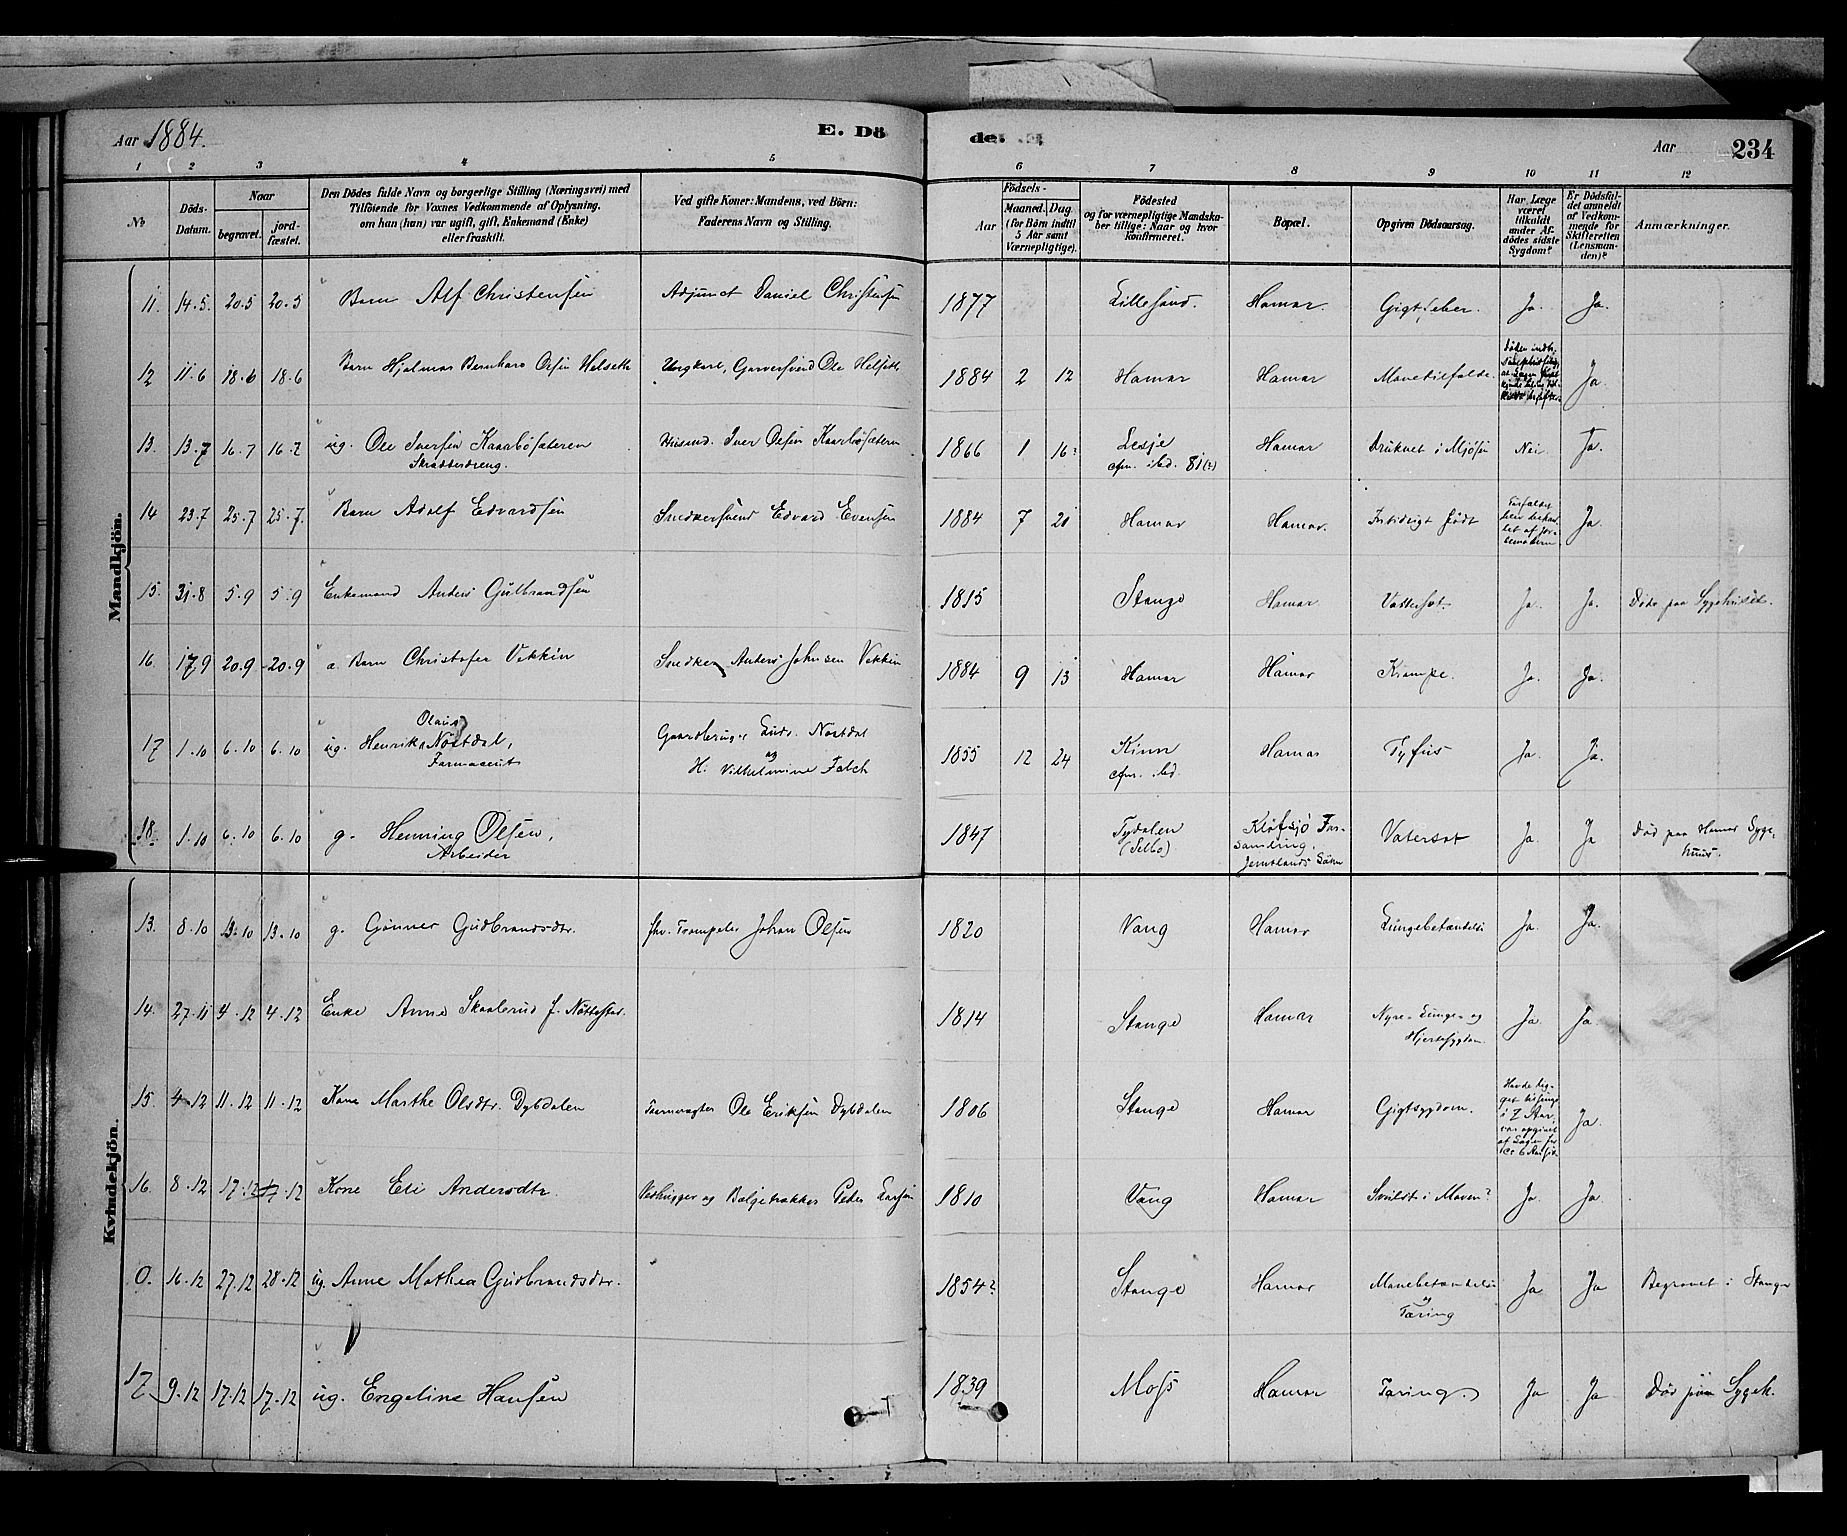 Aar 1884. E. Dö de. Aar 234
1 2 3 4 5 6 7 8 9 10 11 12
No. Döds-Datum. Naar begravet. jord-fæstet.
Den Dödes fulde Navn og borgerlige Stilling (Næringsvei) med
Tilföiende for Voxnes Vedkommende af Oplysning,
om han (hun) var ugift, gift, Enkemand (Enke)
eller fraskilt.
Ved gifte Koner: Mandens, ved Börn:
Faderens Navn og Stilling.
Födsels-
Aar Maaned. Dag.
(for Börn indtil
5 Aar samt
Værnepligtige).
Födested
og for værnepligtige Mandska-
ber tillige: Naar og hvor
konfirmeret.
Bopæl.
Opgiven Dödsaarsag.
Har Læge
været
tilkaldt
under Af-
dödes sidste
Sygdom?
Er Dödsfal-
det anmeldt
af Vedkom-
mende for
Skifteretten
(Lensman-
den)?
Anmærkninger.
Mandkjön.
11. 14.5. 20.5 20.5 Barn Alf Christensen Adjunct Daniel Christensen 1877 Lillesand. Hamar. Gigtfeber. Ja. Ja.
12 11.6 18.6 18.6 Barn Hjalmar Bernhard Olsen Helseth Ungkarl, Garversvend Ole Helseth 1884 2 12 Hamar Hamar Ja.
13. 13.7 16.7 16.7 ug. Ole Iversen Kaarbösæteren Husmd. Iver Olsen Kaarbösætern 1866 1 16? Lesje Hamar Druknet i Mjösen Nei Ja.
Skrædderdreng. cfm. ibd. 81(?)
14 23.7 25.7 25.7. Barn Adolf Edvardsen Snedkersvend Edvard Evensen 1884 7 20 Hamar Hamar. Fortidligt födt Ja.
15. 31.8 5.9 5.9 Enkemand Anders Gulbrandsen 1815 Stange Hamar Vattersot. Ja. Ja. Döde paa Sygehuset.
16. 17.9 20.9 20.9 a. Barn Christofer Vekkin Snedker Anders Johnsen Vekkin 1884 9 13 Hamar Hamar Krampe. Ja. Ja.
Olaus
17 1.10 6.10 6.10 ug. Henrik Nöstdal, Gaardbruger Nöstdal 1855 12 24 Kinn Hamar Tyfus Ja. Ja.
Farmaceut og H. Vilhelmine Falch cfm. ibd.
18. 1.10 6.10 6.10 g. Henning Olsen, 1847 Tydalen Klöfsjö For- Vatersot Ja. Ja Död paa Hamar Syge-
Arbeider (Selbo) samling, huus.
Jemtlands
Kvindekjön.
13. 8.10 13.10 13.10 g. Gunner Gudbrandsdtr. fhv. Trompeter Johan Olsen 1820 Vang Hamar Lungebetændelse Ja. Ja.
14. 27.11 4.12 4.12 Enke Anne Skaalerud f. 1814 Stange Hamar Nyre- Lunge- og Ja. Ja.
Hjertesygdom
15. 4.12 11.12 11.12 Kone Marthe Olsdtr. Dybdalen Taarnvægter Ole Eriksen Dybdalen 1806 Stange Hamar Gigtsygdom. Ja.
16. 8.12 17.12 17.12 Kone Eli Andersdtr. Vedhugger og Bælgetrækker Peder Larsen 1810 Vang Hamar Svulst i Maven? Ja Ja.
0. 16.12 27.12 28.12 ug. Anne Mathea Gudbrandsdtr. 1854? Stange Hamar Mavebetændelse Ja Ja Begravet i Stange
og
Tæring
17 9.12 17.12 17.12 ug. Engeline Hansen 1839 Moss Hamar Tæring. Ja Ja Död paa Sygeh.